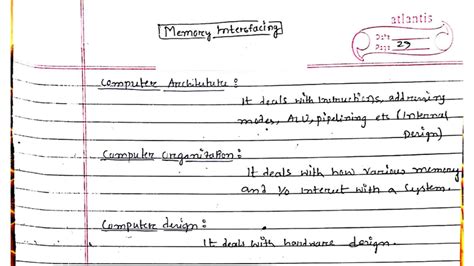 Memory Interfacing
atlantis
Date
Page 29
Computer Archituture :
It deals with instructions, addressing
modes, ALU, pipelining etc (Internal
Design)
Computer Organization :
It deals with how various memory
and I/O interact with a system.
Computer design :
It deals with hardware design.